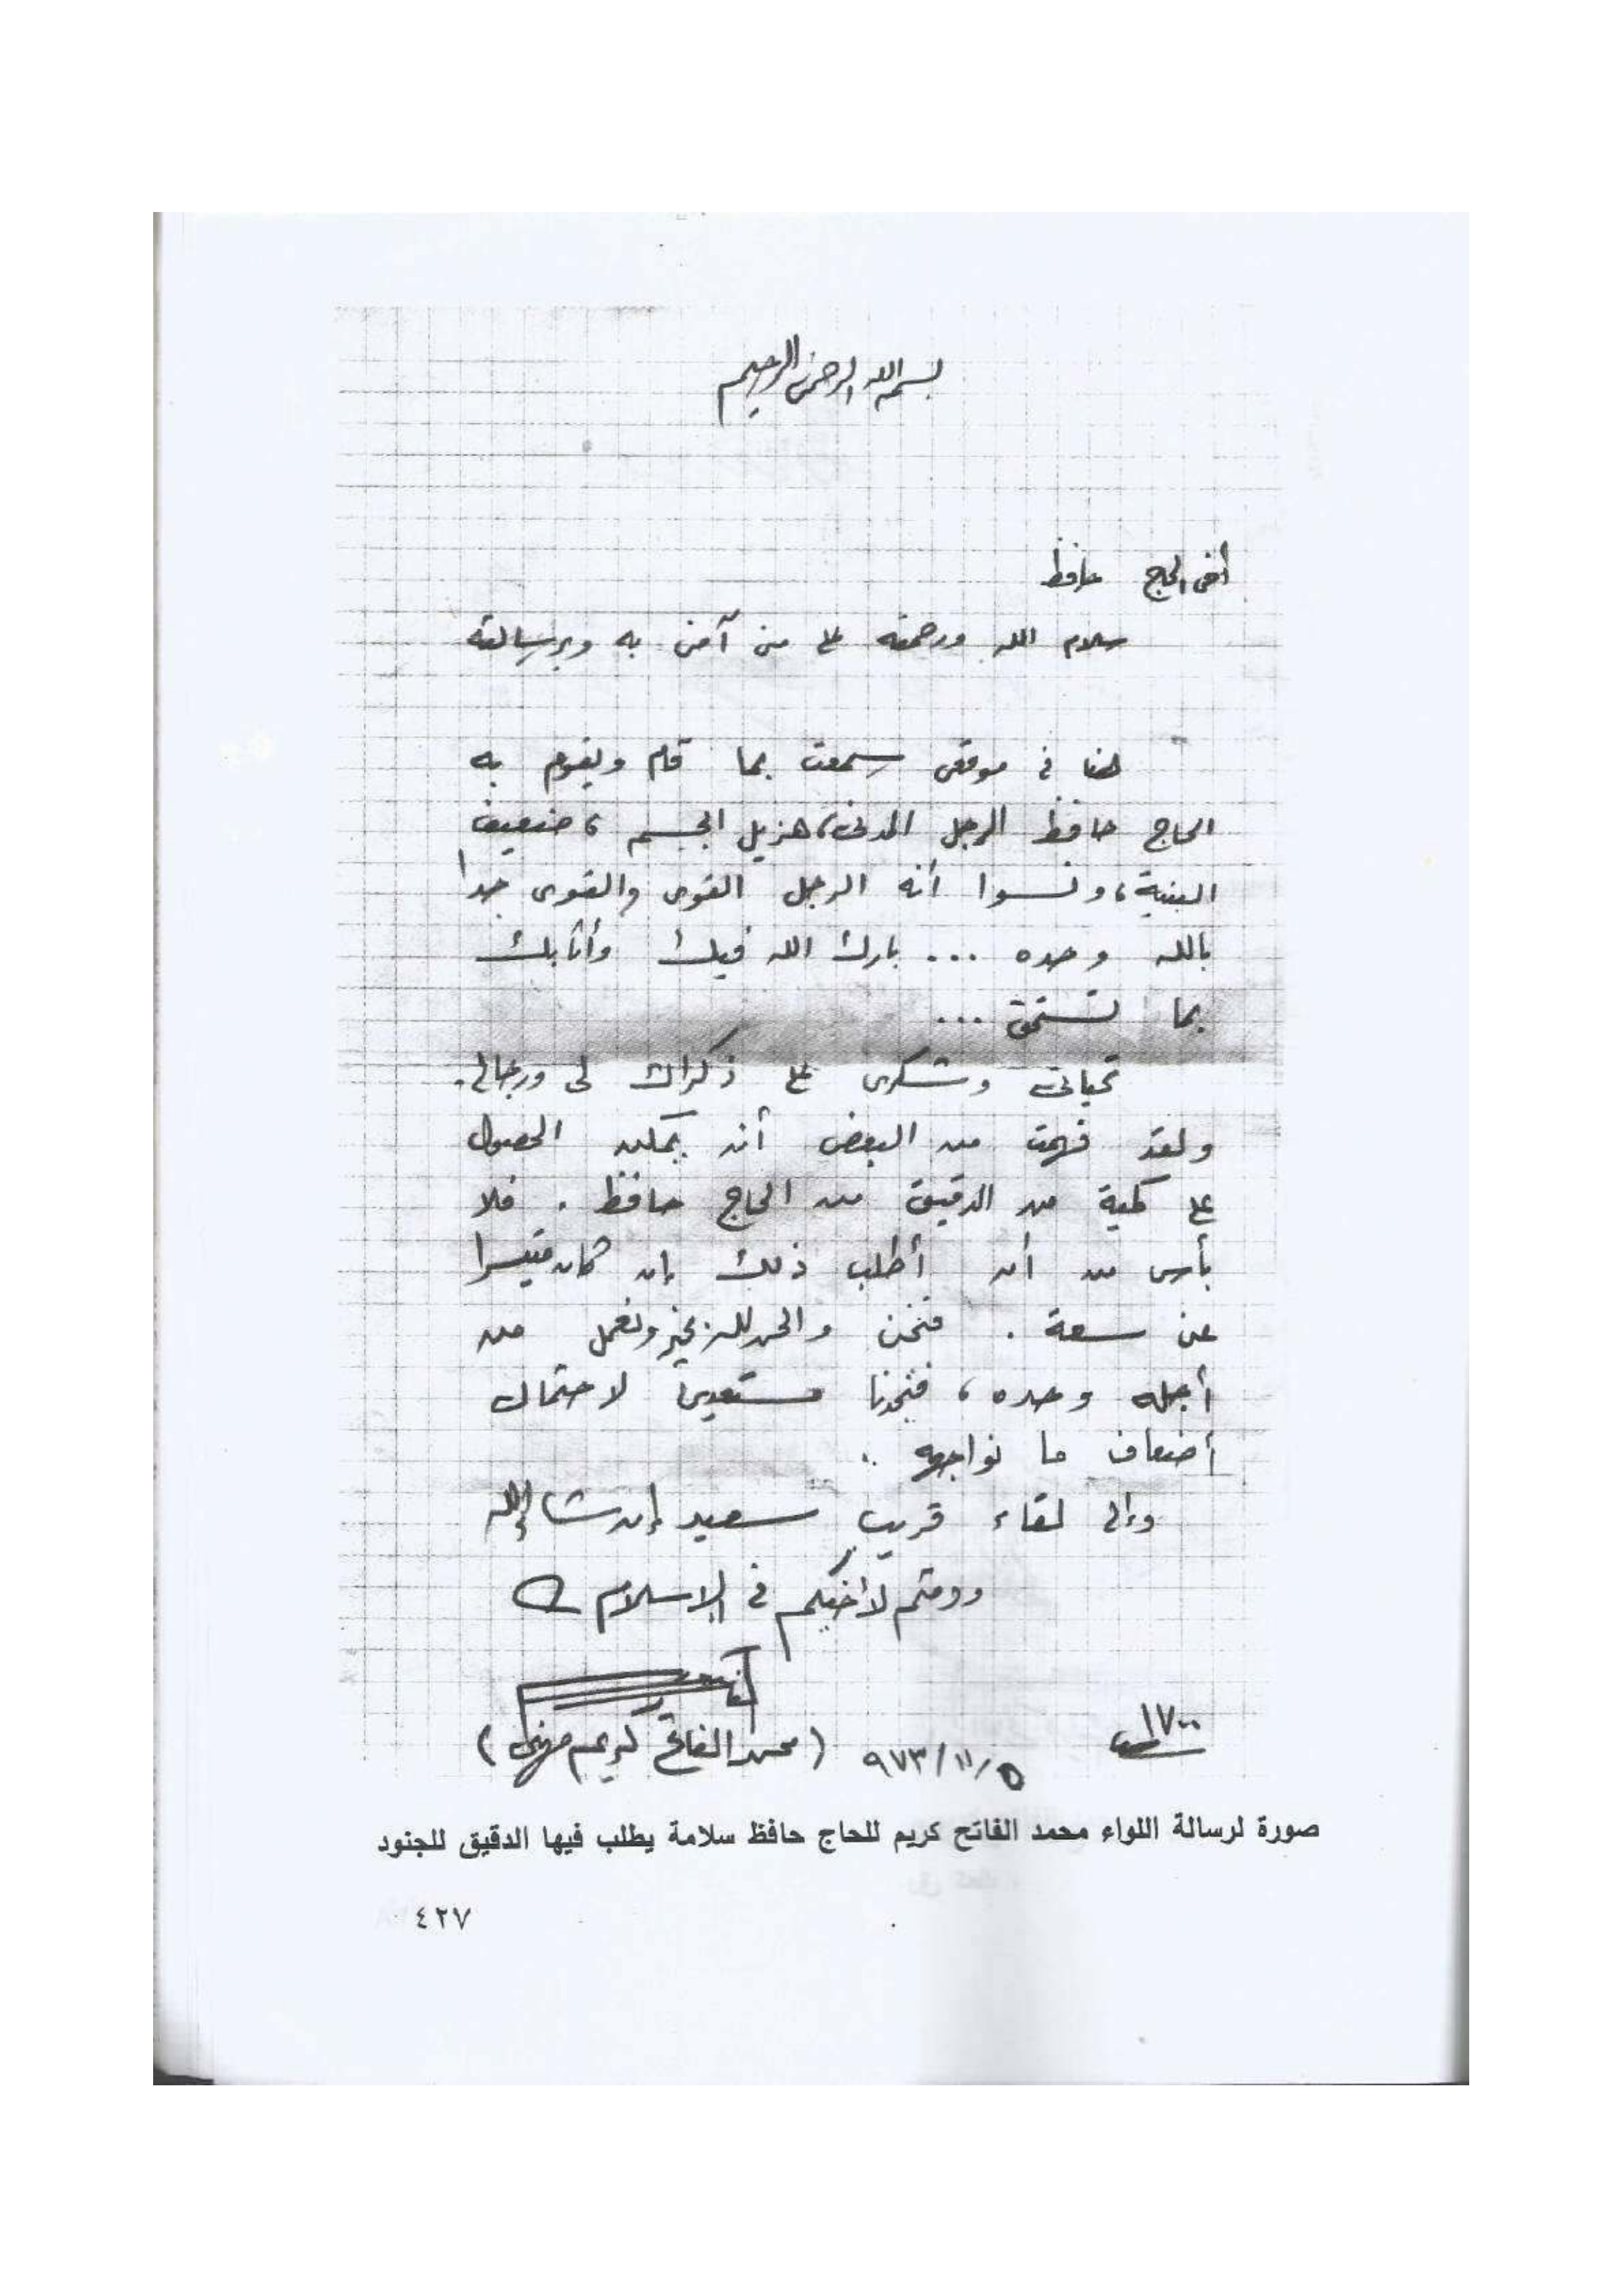 بسم الله الرحمن الرحيم
أخى الحاج حافظ
سلام الله ورحمته على من آمن به وبرسالته
هنا فى موقعى سمعت بما قام ويقوم به
الحاج حافظ الرجل المدنى، هزيل الجسم، ضعيف
البنية، ونسوا أنه الرجل القوى والقوى جدا
بالله وحده ... بارك الله فيك وأثابك
بما تستحق ...
تحياتى وشكرى على ذكراك لى ورجالى.
ولقد فهمت من البعض أنه يمكن الحصول
على كمية من الدقيق من الحاج حافظ. فلا
بأس من أن أطلب ذلك إن كان متيسرا
عن سعة. فنحن والحمد لله بخير ونعمل من
أجله وحده، فتجدنا مستعدين لاحتمال
أضعاف ما نواجهه ..
وإلى لقاء قريب سعيد إن شاء الله
ودمتم لأخيكم فى الإسلام
(محمد الفاتح كريم)
٩٧٣/١١/٥
١٧٠٠
صورة لرسالة اللواء محمد الفاتح كريم للحاج حافظ سلامة يطلب فيها الدقيق للجنود
٤٢٧